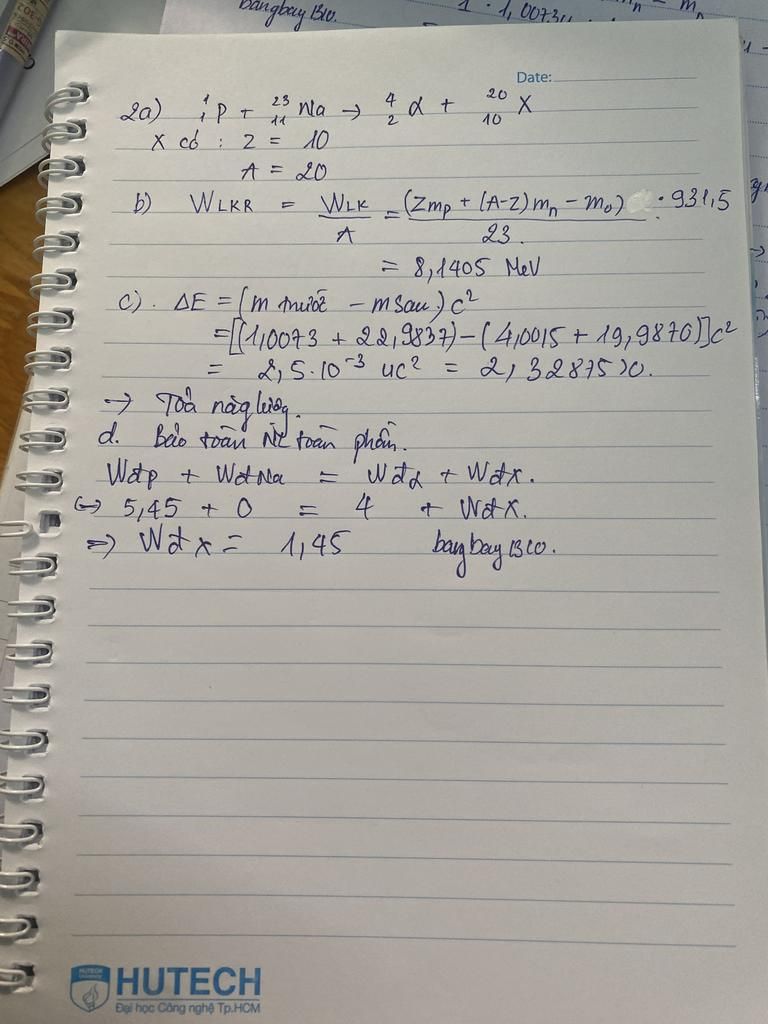 bangbay B10.
1 . 1,0073u
Date:
2a) ¹₁p + ²³₁₁Na → ⁴₂α + ²⁰₁₀X
X có : Z = 10
A = 20
b) WLKR = WLK/A = (Zmp + (A-Z)mn - mo)/23 . 931,5
= 8,1405 MeV
c). ΔE = (m trước - m sau) c²
= [(1,0073 + 22,9837) - (4,0015 + 19,9870)]c²
= 2,5.10⁻³ uc² = 2,32875 >0.
→ Toả năng lượng.
d. Bảo toàn NL toàn phần.
Wđp + WđNa = Wđα + WđX.
(→ 5,45 + 0 = 4 + WđX.
⇒ Wđx = 1,45 bangbay B10.
HUTECH
University
HUTECH
Đại học Công nghệ Tp.HCM